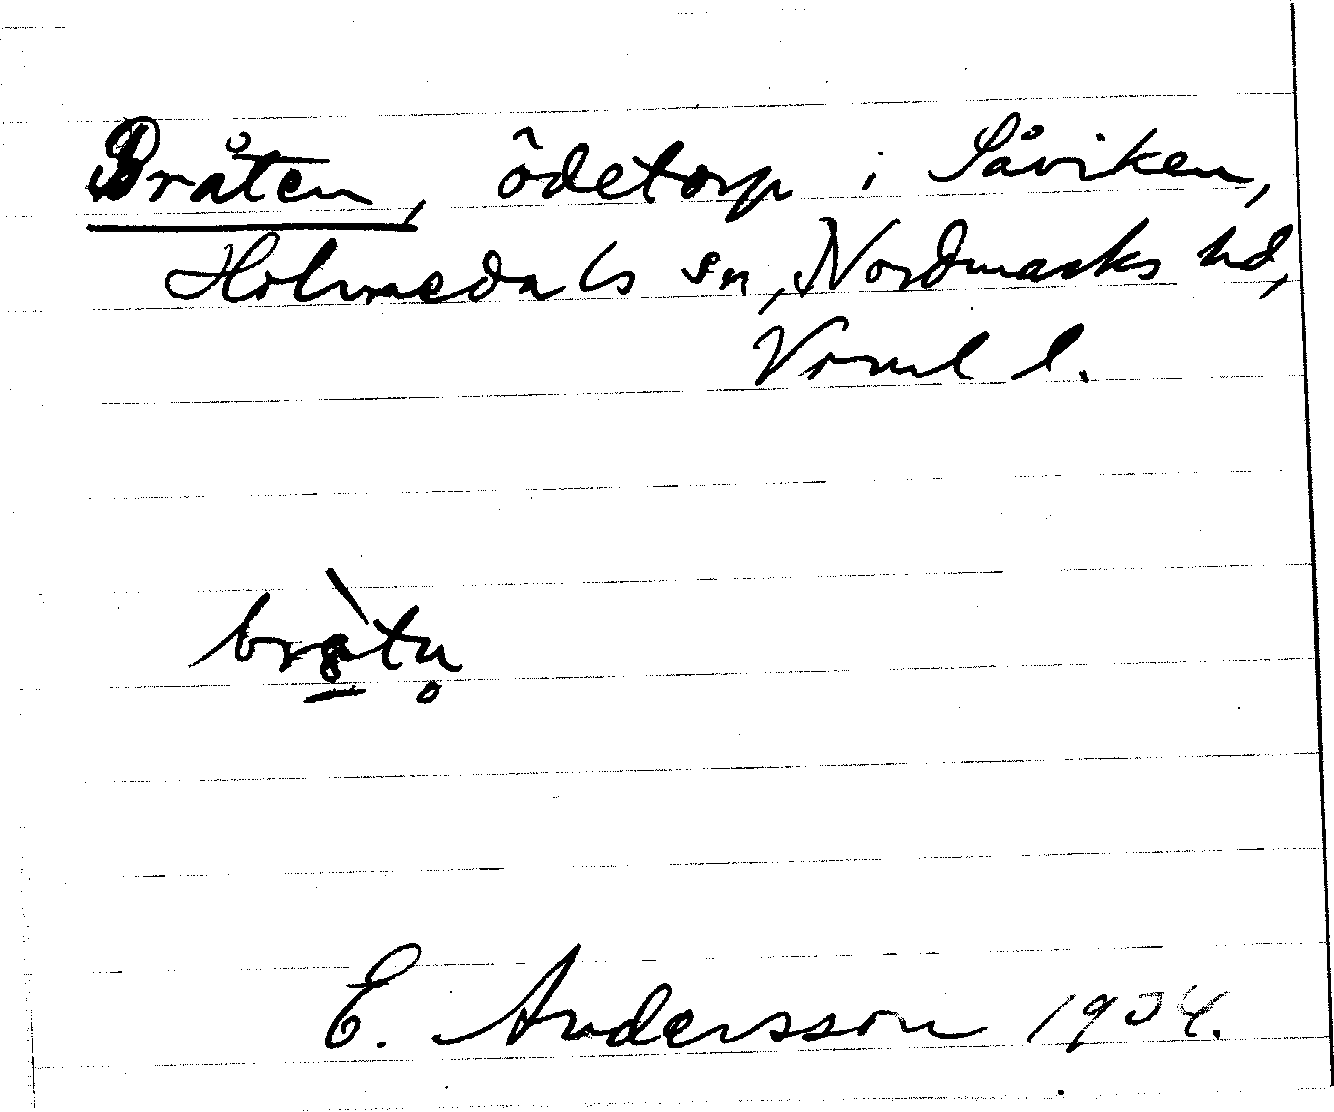 Bråten, ödetorp i Såviken,
Holmedals sn, Nordmarks hd,
Vrml l.
brå̱̀tn̥
E. Andersson 1934.